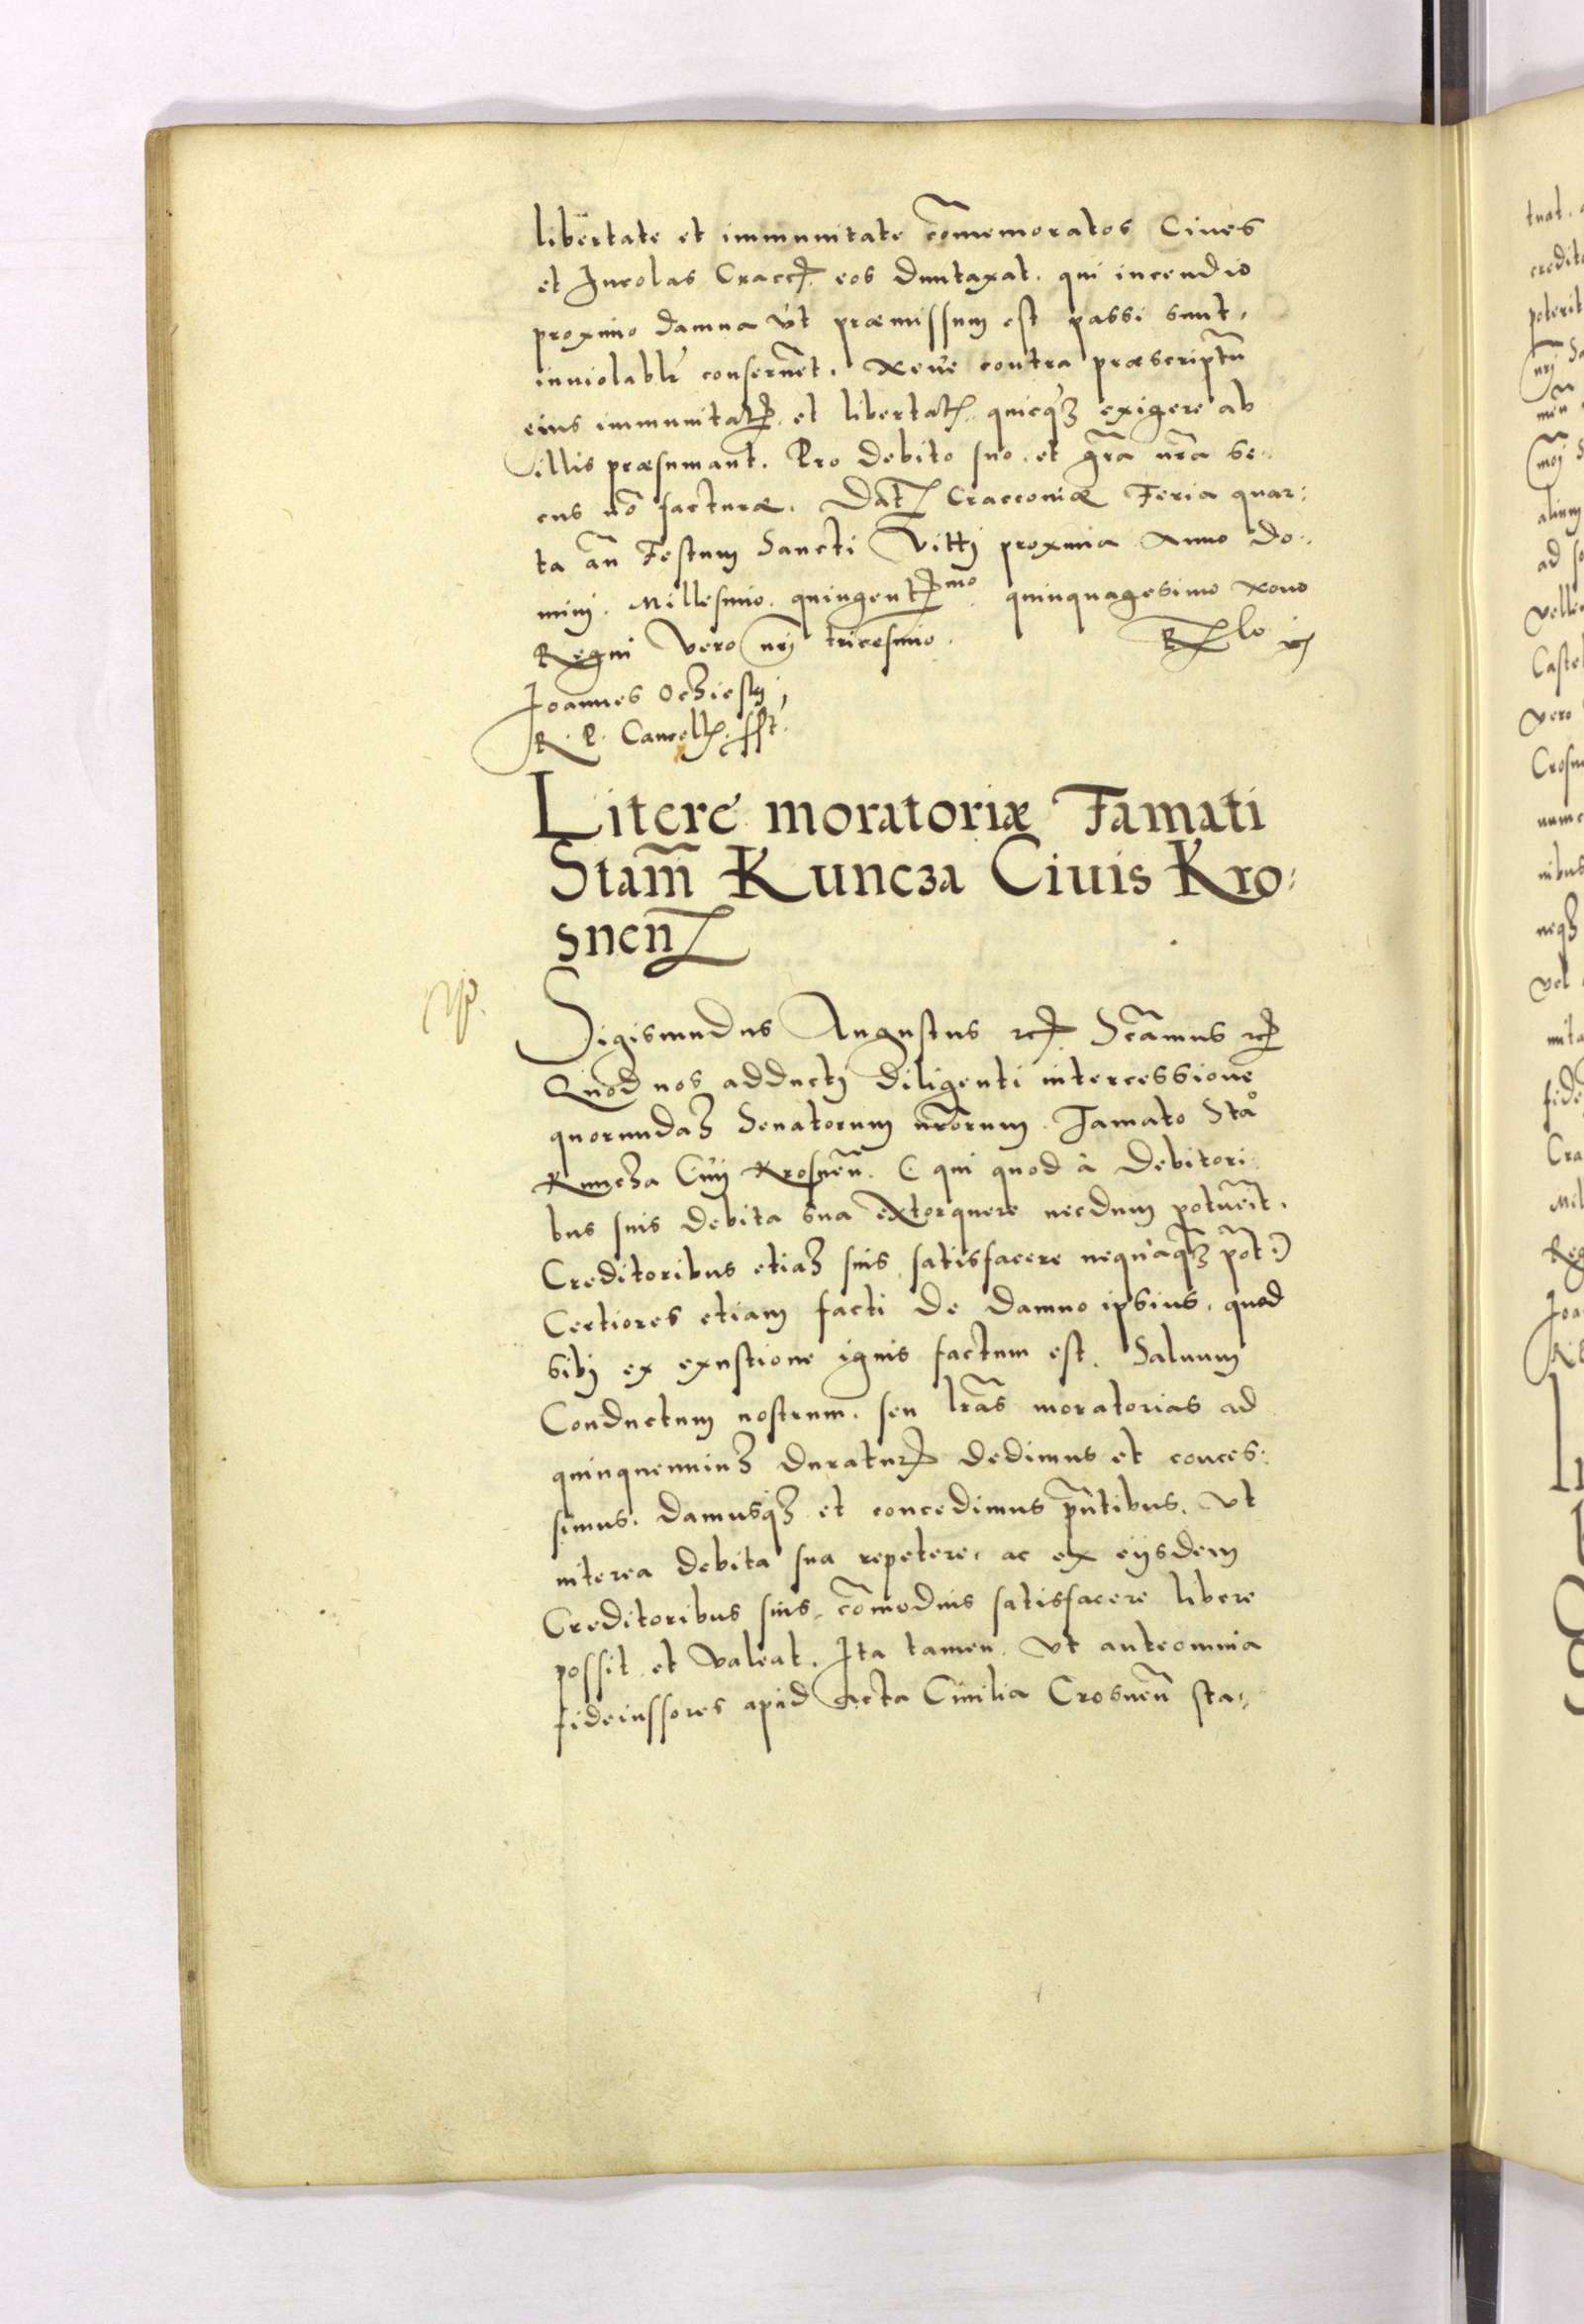 libertate et immunitate cõmemoratos Ciues
et Incolas Cracc̃. eos duntaxat. qui incendio
proximo damna vt præmissum est passi sunt,
inuiolablr̃ conseruẽt. Neue contra præscriptũ
eius immunitat̃. et libertat̃. quicqʒ exigere ab
illis præsumant. Pro debito suo. et grã nrã se:
cus nõ facturæ. Dat̃ Cracconiæ Feria quar:
ta añ Festum Sancti Vitti proxima Anno Do:
mini. Millesimo. quingent̃mo. quinquagesimo Nono
Regni vero nrj̃ tricesimo.
Joannes Oczieskj
R. P. Cancell̃. sst.
Litere moratoriæ Famati
Stañ Kuncza Ciuis Kro:
snen̄
Sigismundus Augustus etc̃. Scãmus etc̃
Quod nos adducti diligenti intercessione
quorundaʒ Senatorum nr̃orum. Famato Staº
Kuncza Ciuj Krosneñ. C qui quod à debitori:
bus suis debita sua extorquere necdum potuẽit.
Creditoribus etiaʒ suis satisfacere nequaqʒ põt)
Certiores etiam facti de damno ipsius, quod
sibj ex exustione ignis factum est. Saluum
Conductum nostrum. seu lrãs moratorias ad
quinquenniuʒ duratur̃ dedimus et conces:
simus. damusqʒ et concedimus pñtibus. Vt
interea debita sua repetere, ac ex eijsdem
Creditoribus suis, cõmodius satisfacere libere
possit et valeat. Ita tamen. Vt anteomnia
fideiussores apud Acta Ciuilia Crosneñ sta: